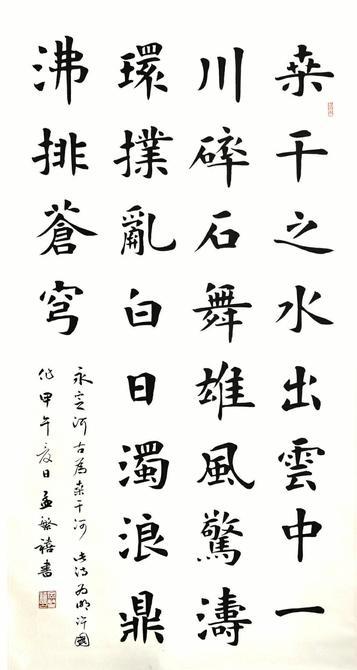 桒干之水出雲中一
川碎石舞雄風驚濤
環撲亂白日濁浪鼎
沸排蒼穹
永定河古爲桒干河 此詩為明許國
作甲午夏日孟繁禧書